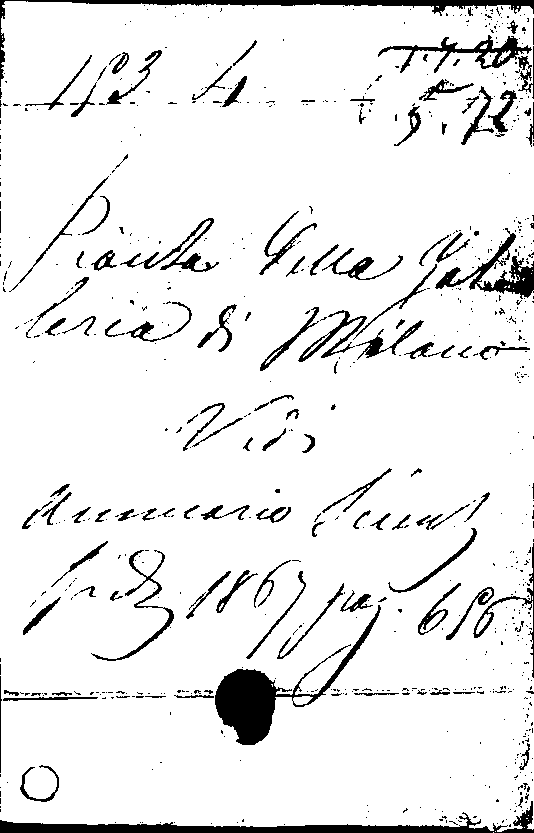 153 4 1.4.20
5.72
Pianta della Gal
leria di Milano
Vedi
Annuario Scient
Ind 1867 pag. 656